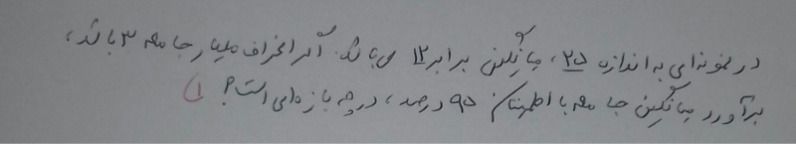 در نمونه‌ای به اندازه ۲۵، میانگین برابر ۱۲ می‌باشد. اگر انحراف معیار جامعه ۳ باشد،
برآورد میانگین جامعه با اطمینان ۹۵ درصد، در چه بازه‌ای است؟ (۱